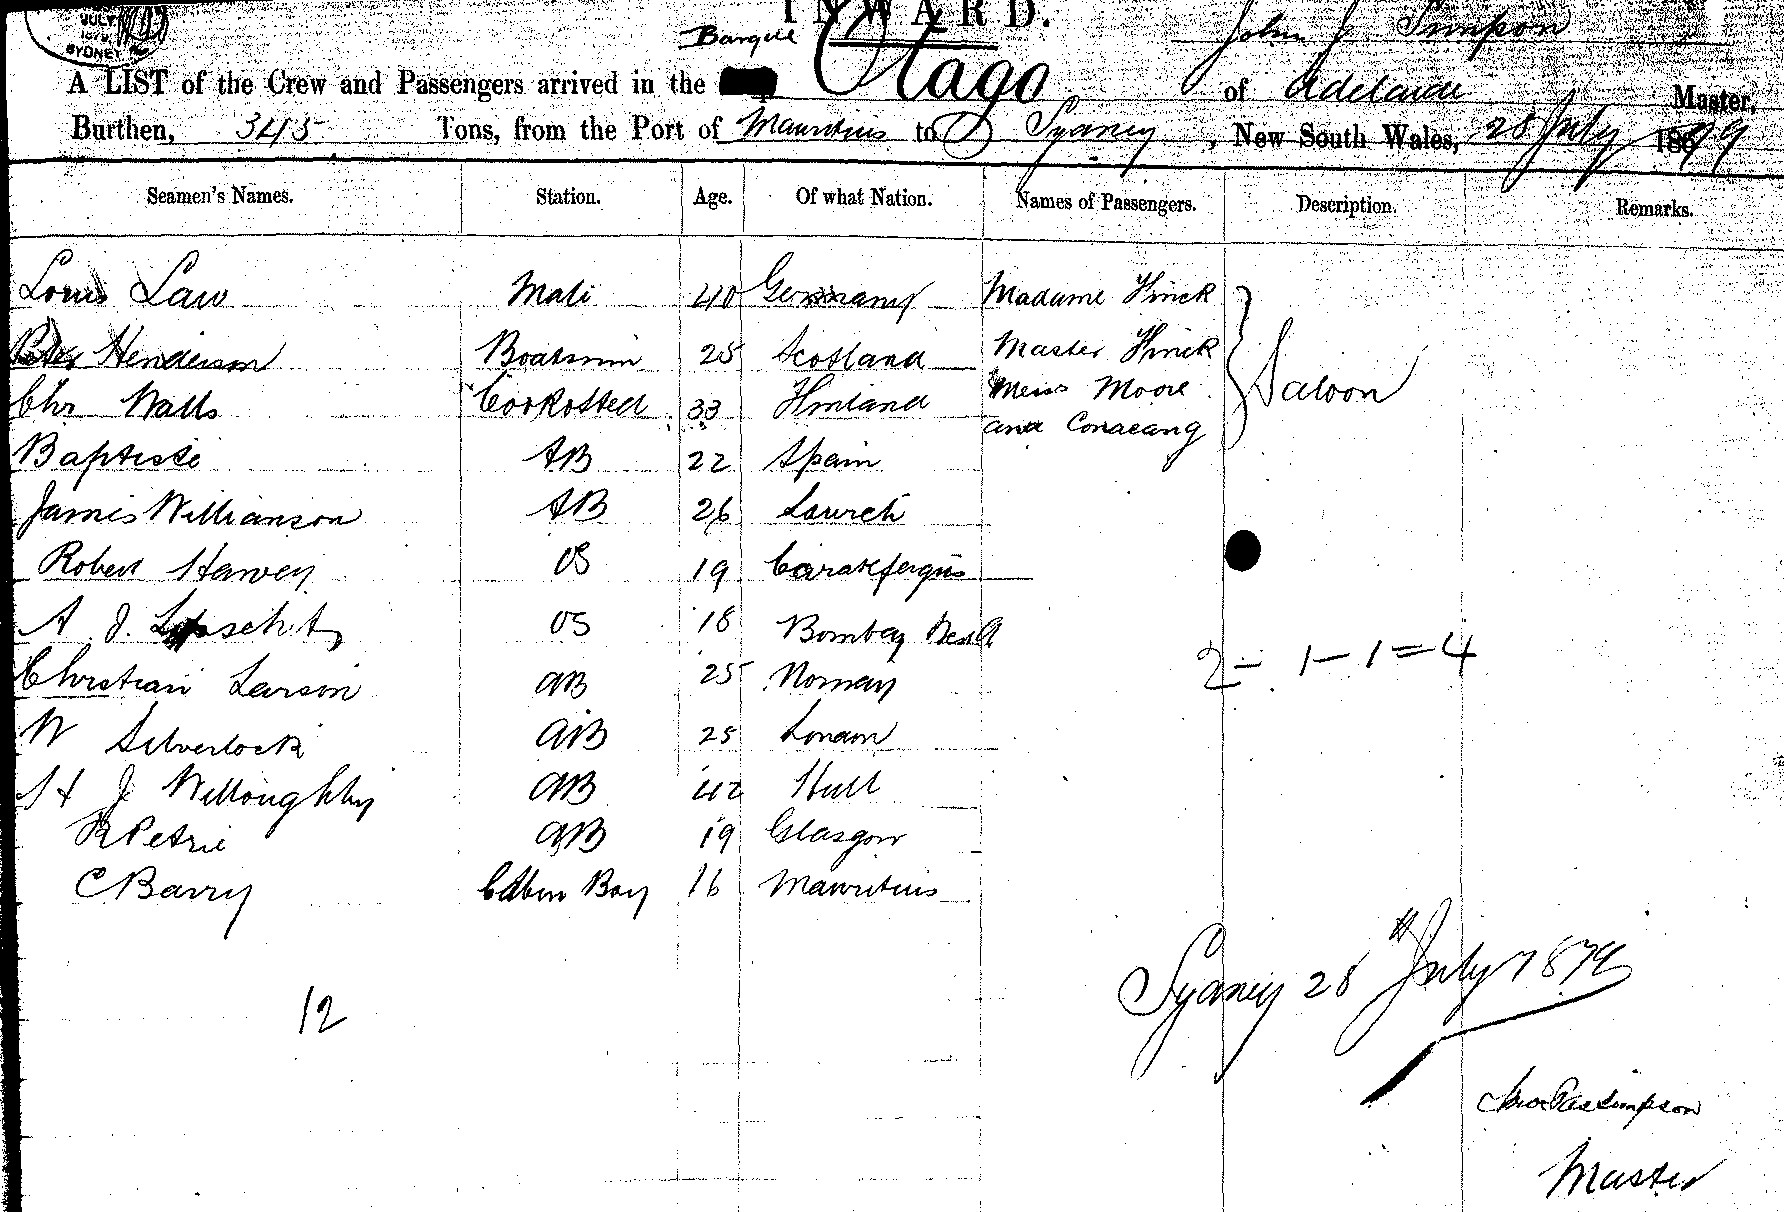 JULY
SYDNEY
INWARD.
Barque Otago John J Simpson
A LIST of the Crew and Passengers arrived in the of Adelaide Master,
Burthen, 345 Tons, from the Port of Mauritius to Sydney, New South Wales, 28 July 1879
Seamen's Names. Station. Age. Of what Nation. Names of Passengers. Description. Remarks.
Louis Law Mate 40 Germany Madame Hinck
Peter Henderson Boatswin 25 Scotland Master Hinck
Saloon
Chr Watts Cook & Sted 33 Finland Miss Moore
and
Baptiste AB 22 Spain
James Willianson AB 26 Lowich
Robert Harvey OS 19 Carakfergus
A. J. OS 18 Bombay
Christian Larson AB 25 Norway
2 - 1 - 1 = 4
W Silverlock AB 25 London
H J Willoughby AB 42 Hull
R Petrie AB 19 Glasgow
C Barry Cabin Boy 16 Mauritius
Sydney 28th July 1879
12
Simpson
Master